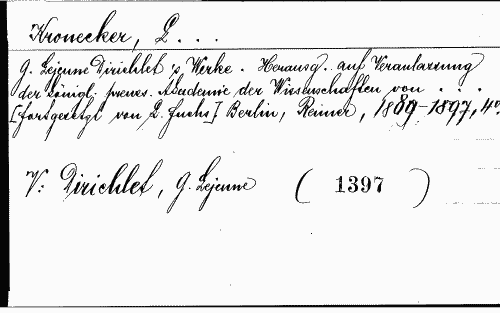 Kronecker, L. . .
G. Lejeune Dirichlet's Werke. Herausg. auf Veranlassung
der königl. preuss. Akademie der Wissenschaften von . . .
[fortgesetzt von L. Fuchs] Berlin, Reimer, 1889-1897, 4°.
V: Dirichlet, G. Lejeune ( 1397 )